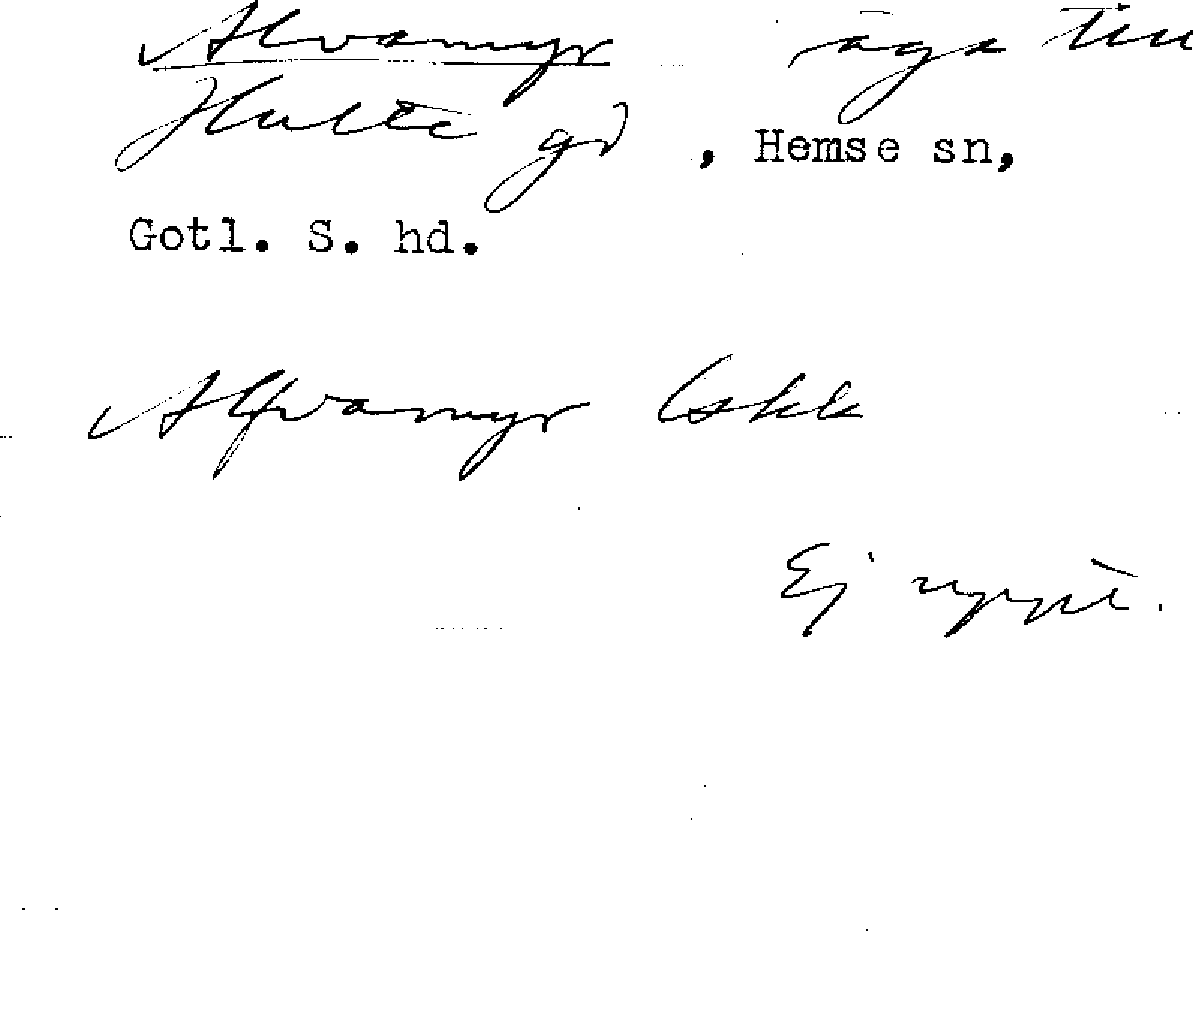 Alvamyr äga till
Hulte gd, Hemse sn,
Gotl. S. hd.
Alfvamyr Cskk
Ej uppt.